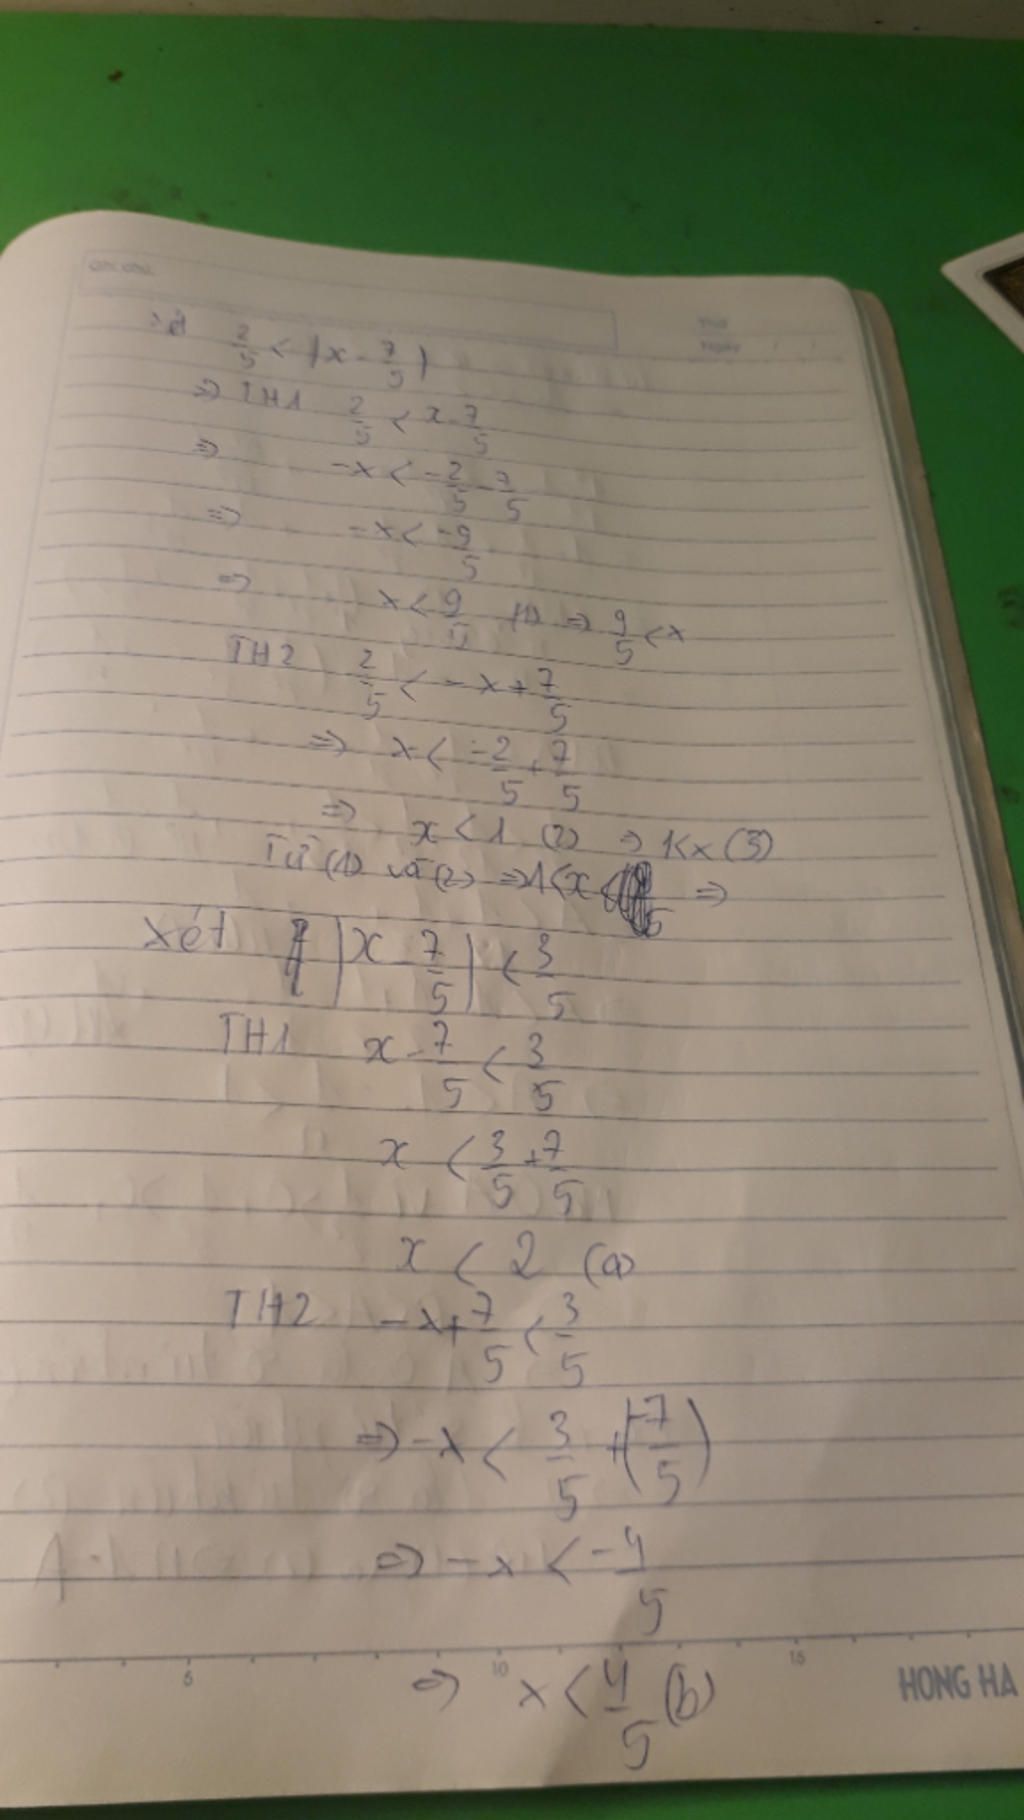 Xét 2/5 < |x - 7/5|
=> TH1 2/5 < x - 7/5
=> -x < -2/5 - 7/5
=> -x < -9/5
=> x < 9/5 (1) => 9/5 < x
TH2 2/5 < -x + 7/5
=> x < -2/5 + 7/5
=> x < 1 (2) => 1 < x (3)
Từ (1) và (2) => 1 < x < =>
Xét |x - 7/5| < 3/5
TH1 x - 7/5 < 3/5
x < 3/5 + 7/5
x < 2 (a)
TH2 -x + 7/5 < 3/5
=> -x < 3/5 + (-7/5)
=> -x < -4/5
5 10 15
HONG HA
=> x < 4/5 (b)